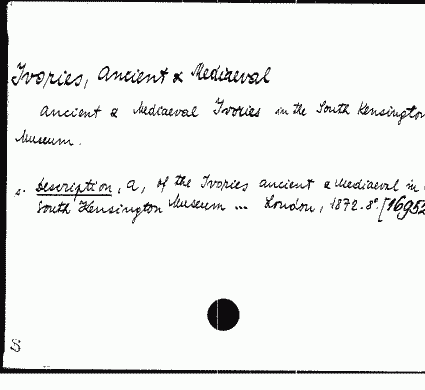 Ivories, Ancient & Mediaeval
Ancient & Mediaeval Ivories in the South Kensington
Museum.
s. Description, A, of the Ivories ancient & mediaeval in
South Kensington Museum ... London, 1872. 8°. [16952
S